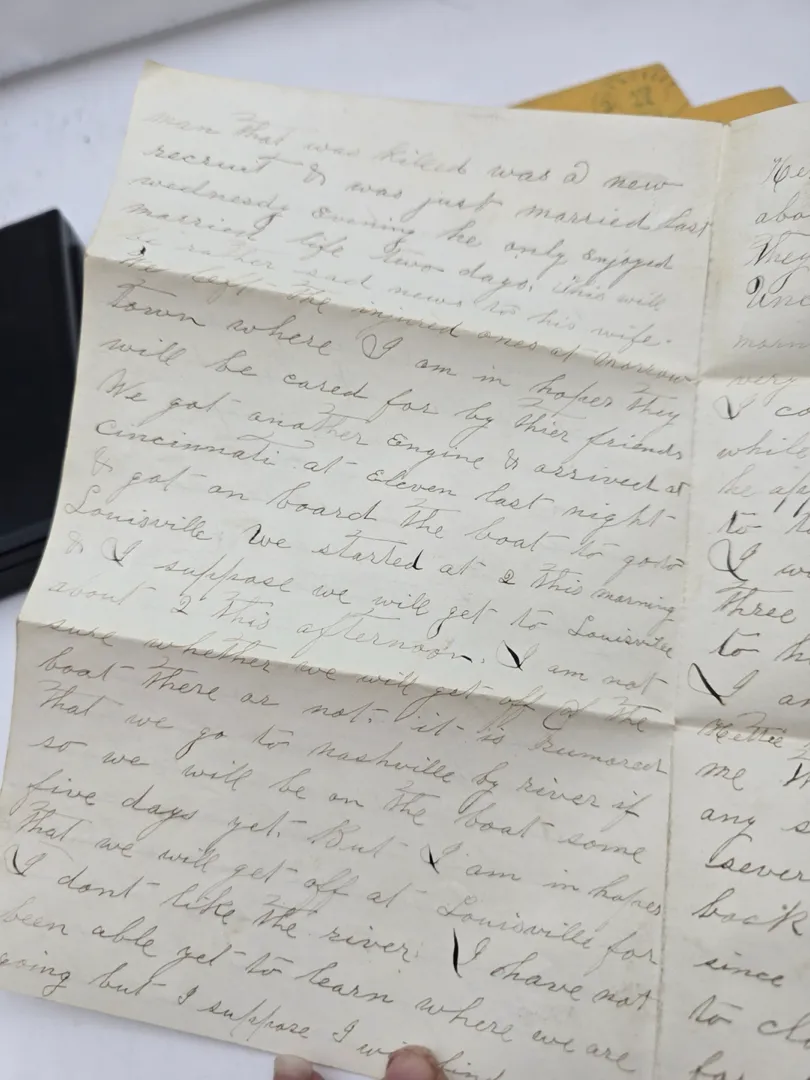 man that was killed was a new
recruit & was just married last
wednesdy Evening he only Enjoyed
married life two days. This will
be rather sad news to his wife.
We left the injured ones at Morrow
Town where I am in hopes they
will be cared for by thier friends
We got another Engine & arrived at
Cincinnati at Eleven last night
& got on board the boat to go to
Louisville. We started at 2 this morning
& I suppose we will get to Louisville
about 2 this afternoon. I am not
sure whether we will get off of the
boat there or not. it is rumored
that we go to nashville by river if
so we will be on the boat some
five days yet. But I am in hopes
that we will get off at Louisville for
I dont like the river. I have not
been able yet to learn where we are
going but I suppose I will find
abo
They
Unc
morn
very
I co
while
he app
to
I wo
three
to h
I am
Hettie
me
any s
sever
back
since
to clo
for